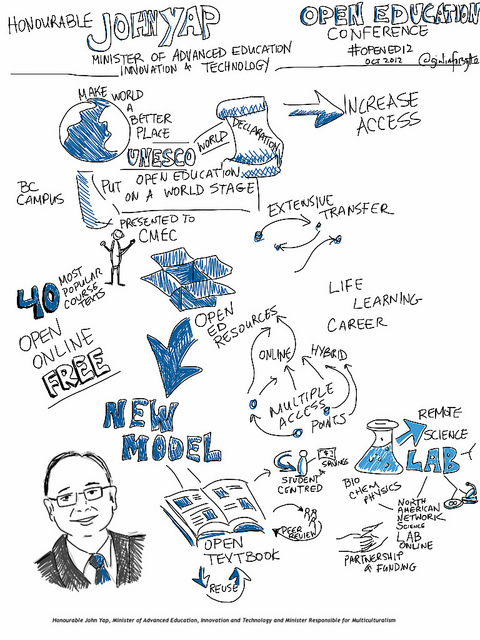 HONOURABLE
JOHN YAP
MINISTER OF ADVANCED EDUCATION
INNOVATION & TECHNOLOGY
OPEN EDUCATION
CONFERENCE
#OPENED12
OCT 2012
MAKE WORLD
A
BETTER
PLACE
UNESCO
WORLD
DECLARATION
INCREASE
ACCESS
BC
CAMPUS
PUT OPEN EDUCATION
ON A WORLD STAGE
PRESENTED TO
CMEC
EXTENSIVE
TRANSFER
40 MOST
POPULAR
COURSE
TEXTS
OPEN
ONLINE
FREE
OPEN
ED
RESOURCES
LIFE
LEARNING
CAREER
ONLINE
HYBRID
MULTIPLE
ACCESS
POINTS
NEW
MODEL
STUDENT
CENTRED
SAVINGS
REMOTE
SCIENCE
LAB
BIO
CHEM
PHYSICS
NORTH
AMERICAN
NETWORK
SCIENCE
LAB
ONLINE
PARTNERSHIP
& FUNDING
PEER
REVIEW
OPEN
TEXTBOOK
REUSE
Honourable John Yap, Minister of Advanced Education, Innovation and Technology and Minister Responsible for Multiculturalism